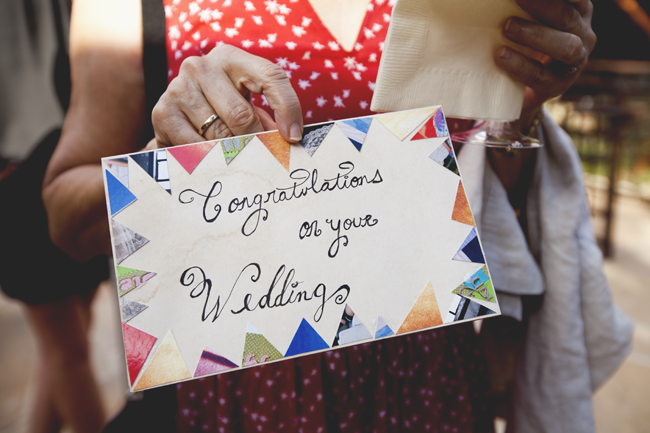 Congratulations
on your
Wedding